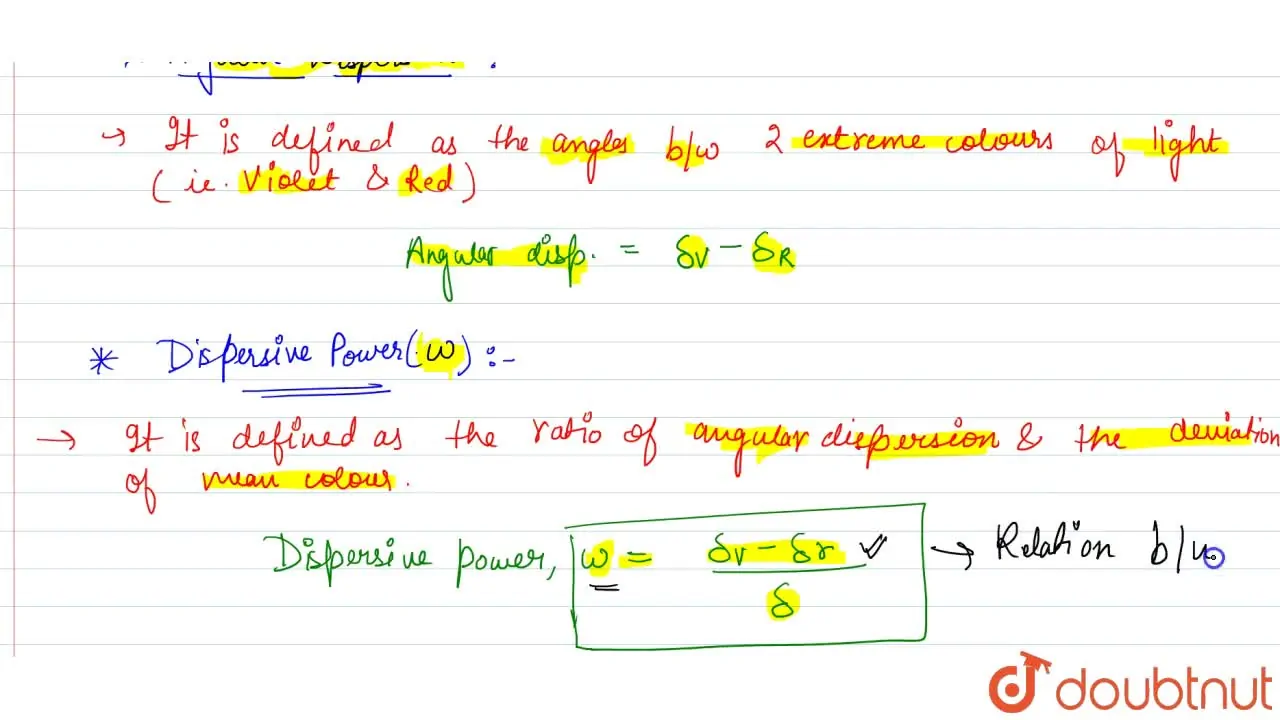 → It is defined as the angles b/w 2 extreme colours of light
( ie. Violet & Red )
Angular disp. = δV − δR
* Dispersive Power (ω) :-
→ It is defined as the ratio of angular dispersion & the deviation
of mean colour.
Dispersive power, ω = δv − δr / δ → Relation b/w
doubtnut